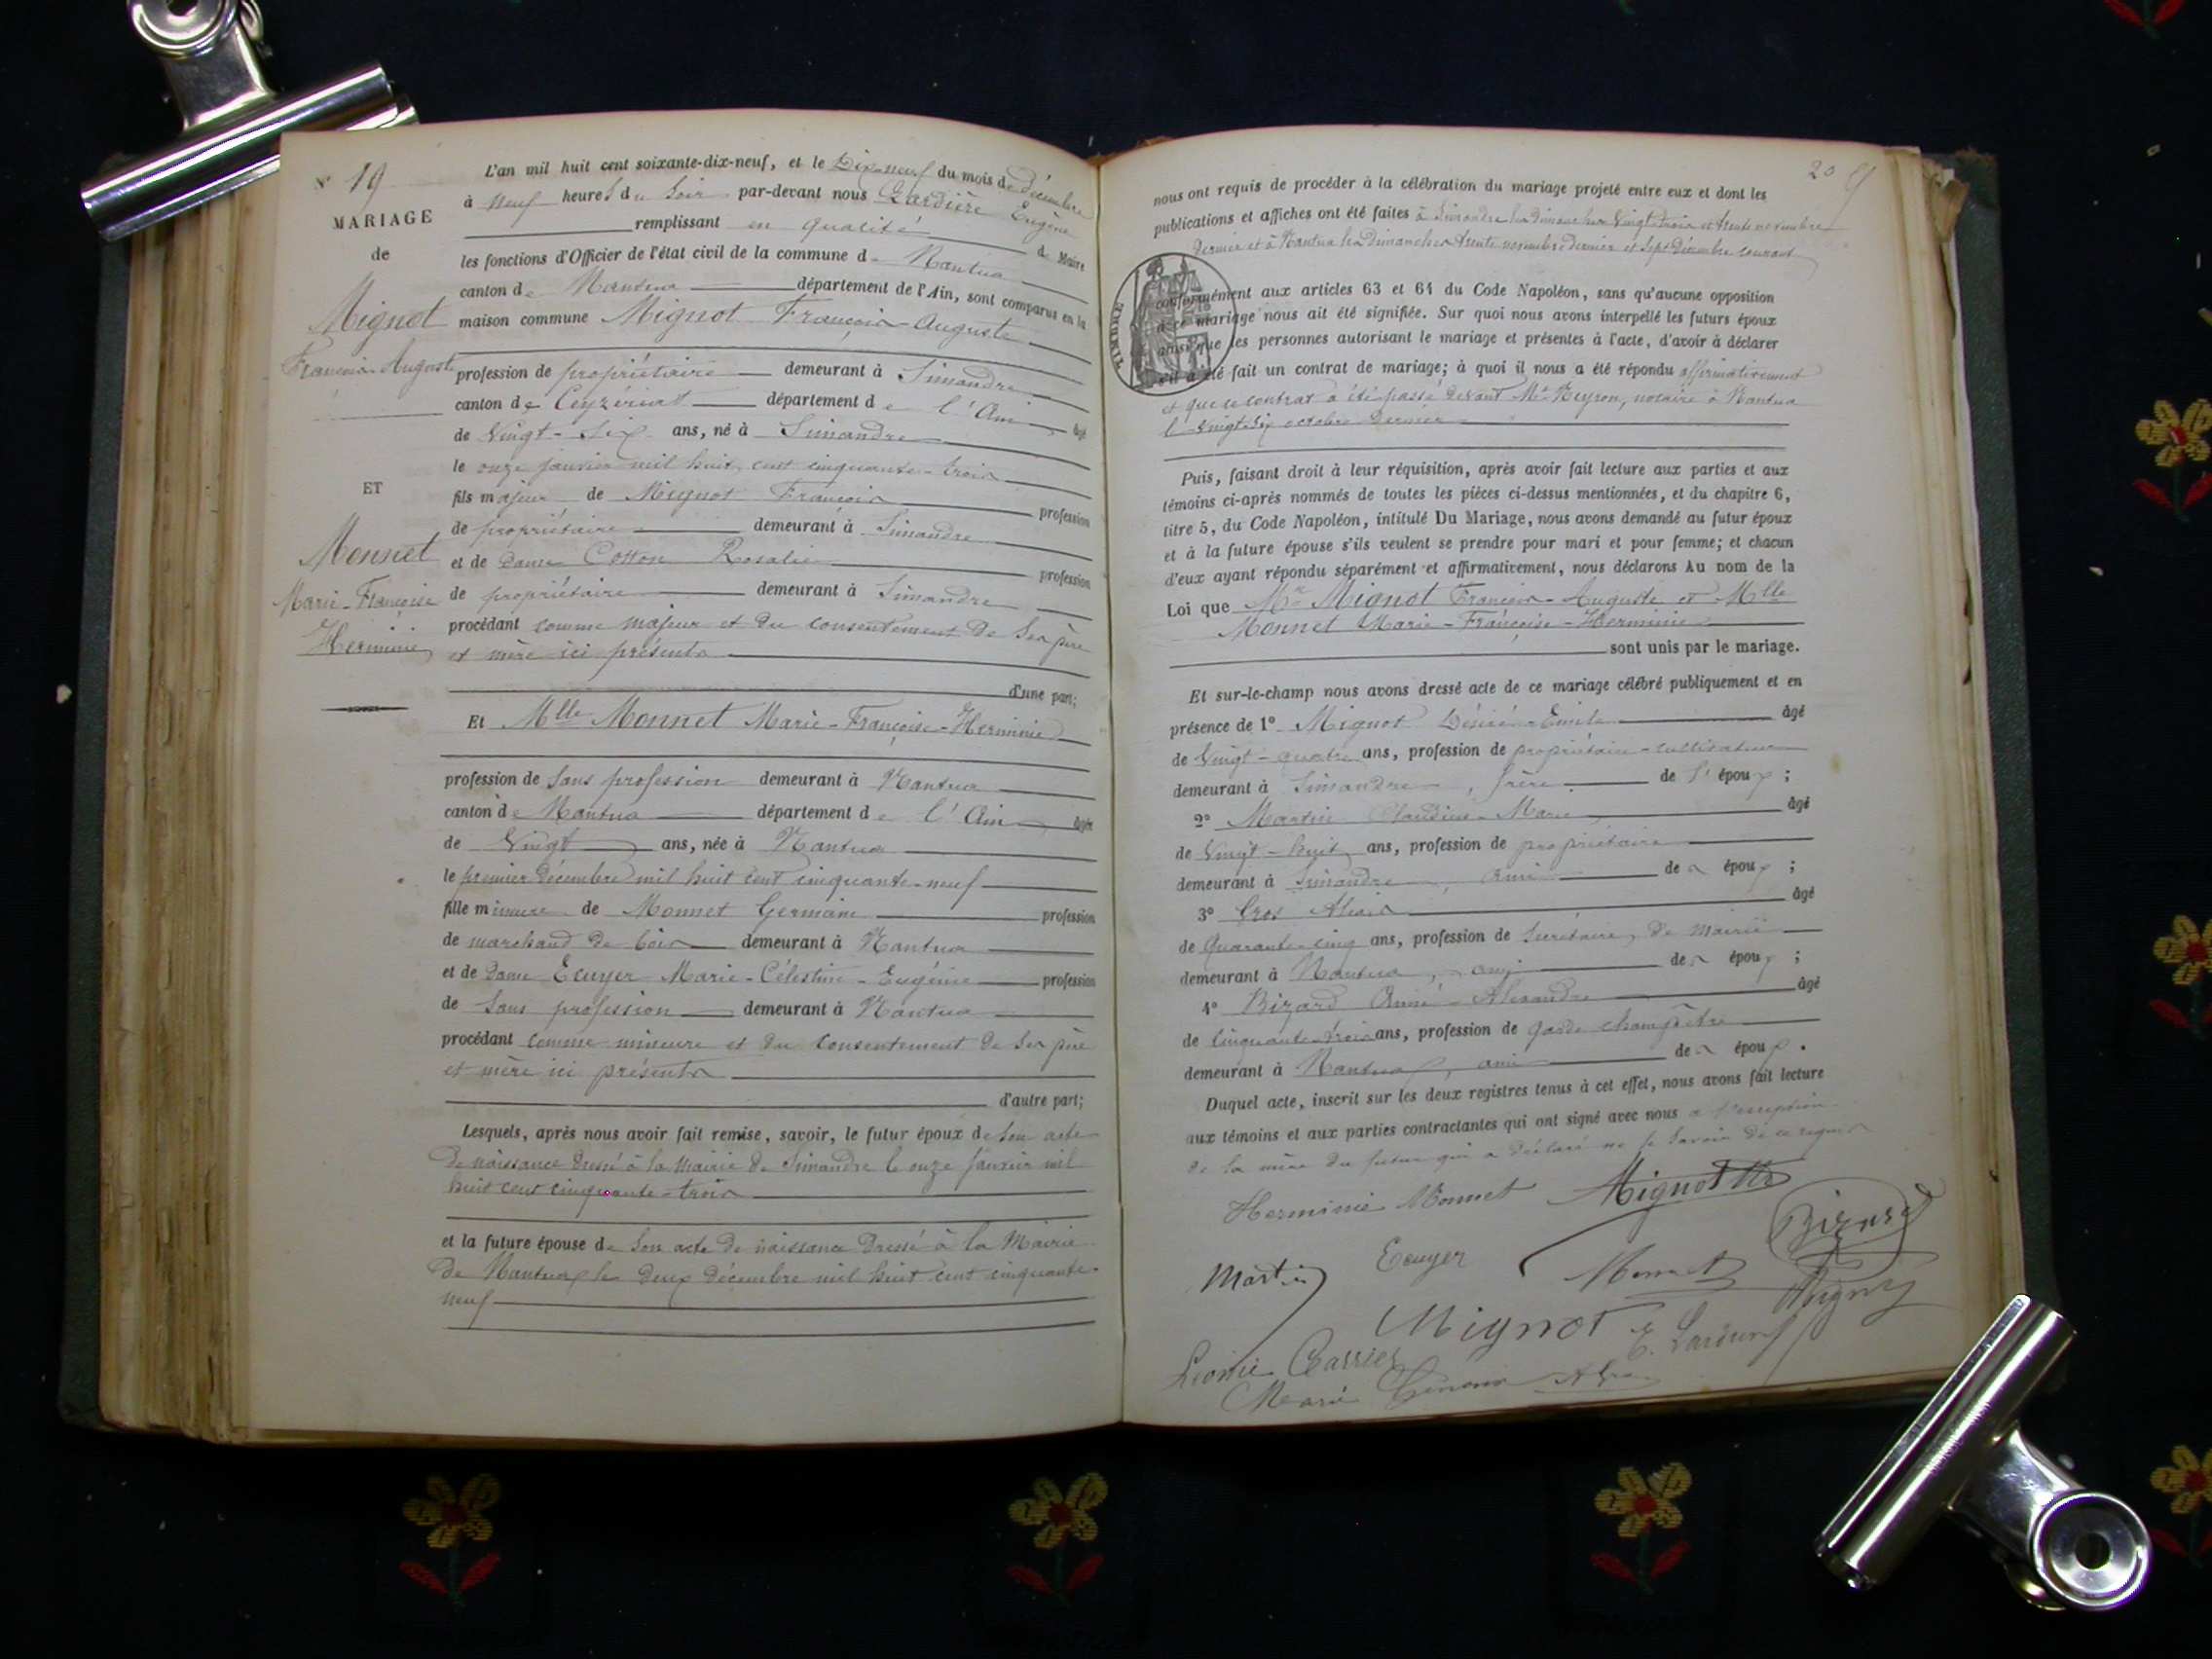 N° 19
MARIAGE
de
Mignot
François-Auguste
ET
Monnet
Marie-Françoise
Herminie
L'an mil huit cent soixante-dix-neuf, et le Dix-neuf du mois de décembre
à neuf heures du soir par-devant nous Eugène
remplissant en qualité de Maire
les fonctions d'Officier de l'état civil de la commune de Nantua
canton de Nantua département de l'Ain, sont comparus en la
maison commune Mignot François-Auguste
profession de propriétaire demeurant à Simandre
canton de Ceyzériat département de l'Ain âgé
de Vingt-six ans, né à Simandre
le onze janvier mil huit cent cinquante-trois
fils majeur de Mignot François profession
de propriétaire demeurant à Simandre
et de Dame Cotton Rosalie profession
de propriétaire demeurant à Simandre
procédant comme majeur et du consentement de ses père
et mère ici présents
d'une part;
Et Mlle Monnet Marie-Françoise-Herminie
profession de sans profession demeurant à Nantua
canton de Nantua département de l'Ain âgée
de Vingt ans, née à Nantua
le premier décembre mil huit cent cinquante-neuf
fille mineure de Monnet Germain profession
de marchand de bois demeurant à Nantua
et de Dame Ecuyer Marie-Célestine-Eugénie profession
de sans profession demeurant à Nantua
procédant comme mineure et du consentement de ses père
et mère ici présents
d'autre part;
Lesquels, après nous avoir fait remise, savoir, le futur époux de son acte
de naissance dressé à la Mairie de Simandre le onze janvier mil
huit cent cinquante-trois
et la future épouse de son acte de naissance dressé à la Mairie
de Nantua le deux décembre mil huit cent cinquante-
neuf
20
nous ont requis de procéder à la célébration du mariage projeté entre eux et dont les
publications et affiches ont été faites à Simandre les Dimanches Vingt-trois et trente novembre
dernier et à Nantua les Dimanches trente novembre dernier et sept Décembre courant
TIMBRE
conformément aux articles 63 et 64 du Code Napoléon, sans qu'aucune opposition
à ce mariage nous ait été signifiée. Sur quoi nous avons interpellé les futurs époux
ainsi que les personnes autorisant le mariage et présentes à l'acte, d'avoir à déclarer
s'il a été fait un contrat de mariage; à quoi il nous a été répondu affirmativement
et que ce contrat a été passé devant Me Neyron, notaire à Nantua
le vingt-six octobre dernier
Puis, faisant droit à leur réquisition, après avoir fait lecture aux parties et aux
témoins ci-après nommés de toutes les pièces ci-dessus mentionnées, et du chapitre 6,
titre 5, du Code Napoléon, intitulé Du Mariage, nous avons demandé au futur époux
et à la future épouse s'ils veulent se prendre pour mari et pour femme; et chacun
d'eux ayant répondu séparément et affirmativement, nous déclarons Au nom de la
Loi que Mr Mignot François-Auguste et Mlle
Monnet Marie-Françoise-Herminie
sont unis par le mariage.
Et sur-le-champ nous avons dressé acte de ce mariage célébré publiquement et en
présence de 1° Mignot Désiré-Emile âgé
de Vingt-quatre ans, profession de propriétaire-cultivateur
demeurant à Simandre, frère de l'époux;
2° Martin Claudius-Marie âgé
de Vingt-huit ans, profession de propriétaire
demeurant à Simandre, ami des époux;
3° Gros Alexis âgé
de Quarante-cinq ans, profession de Secrétaire de mairie
demeurant à Nantua, ami des époux;
4° Bizard Aimé-Alexandre âgé
de Cinquante-trois ans, profession de garde champêtre
demeurant à Nantua, ami des époux.
Duquel acte, inscrit sur les deux registres tenus à cet effet, nous avons fait lecture
aux témoins et aux parties contractantes qui ont signé avec nous à l'exception
de la mère du futur qui a déclaré ne le savoir de ce requis
Herminie Monnet Mignot
Bizard
Martin Ecuyer Monnet
Mignot
Léonie Carrier
Marie